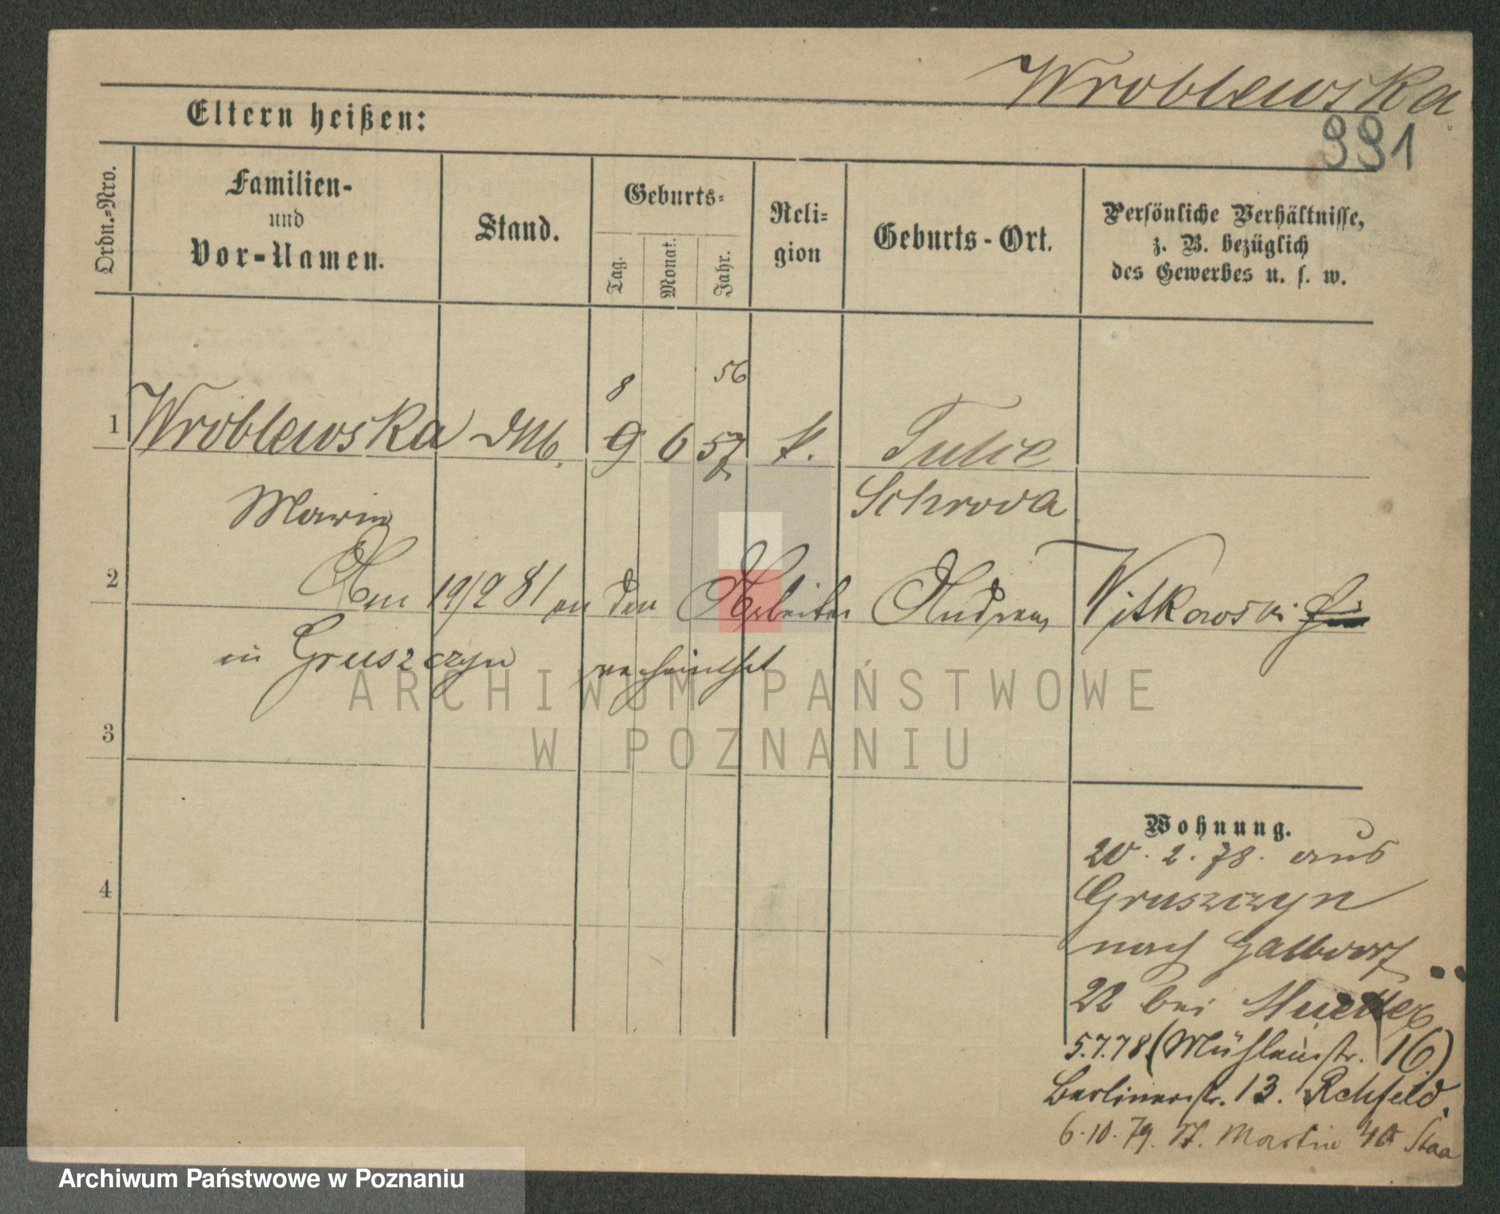 Wroblewska
991
Eltern heißen:
Ordn.-Nro.
Familien-
und
Vor-Namen.
Stand.
Geburts-
Tag.
Monat.
Jahr.
Reli-
gion
Geburts-Ort.
Persönliche Verhältnisse,
z. B. bezüglich
des Gewerbes u. s. w.
8 56
1 Wroblewska DM. 9 6 57 k. Tulce
Marie Schroda
2 Am 19/2 81 an den Arbeiter Andreas Witkowski
in Gruszczyn verheirathet
3
4
ARCHIWUM PAŃSTWOWE
W POZNANIU
Wohnung.
20.2.78. aus
Gruszczyn
nach Halbdorf
22 bei Mueller
5.7.78 (Mühlenstr. 16)
Berlinerstr. 13. Rehfeld.
6.10.79. St. Martin 40
Archiwum Państwowe w Poznaniu